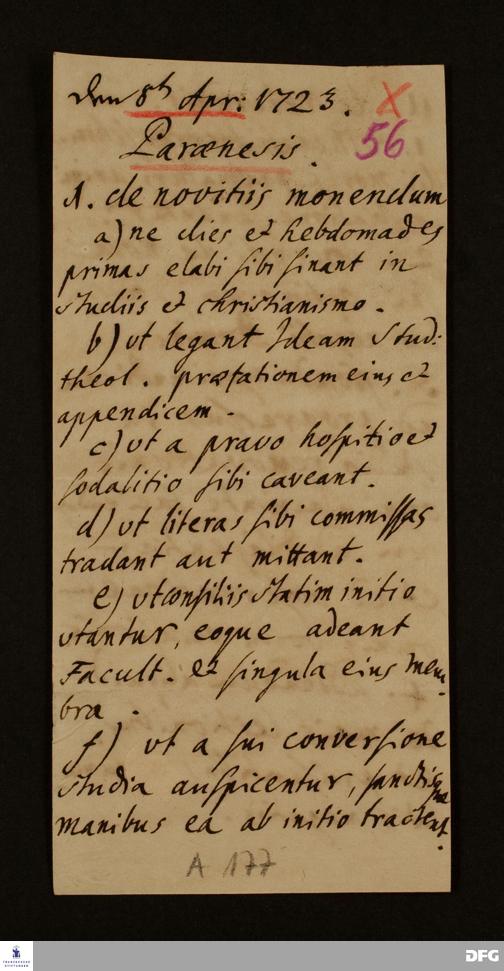 den 8th Apr: 1723. X
Parænesis. 56
1. de novitiis monendum
a) ne dies et hebdomades
primas elabi sibi sinant in
studiis et christianismo.
b) vt legant Ideam Stud:
theol. præfationem eius et
appendicem.
c) vt a pravo hospitio et
sodalitio sibi caveant.
d) vt literas sibi commissas
tradant aut mittant.
e) vt consiliis statim initio
vtantur, eoque adeant
Facult. et singula eius mem-
bra.
f) vt a sui conversione
studia auspicentur, sanctisque
manibus ea ab initio tractent.
A 177
FRANCKESCHE
STIFTUNGEN
DFG